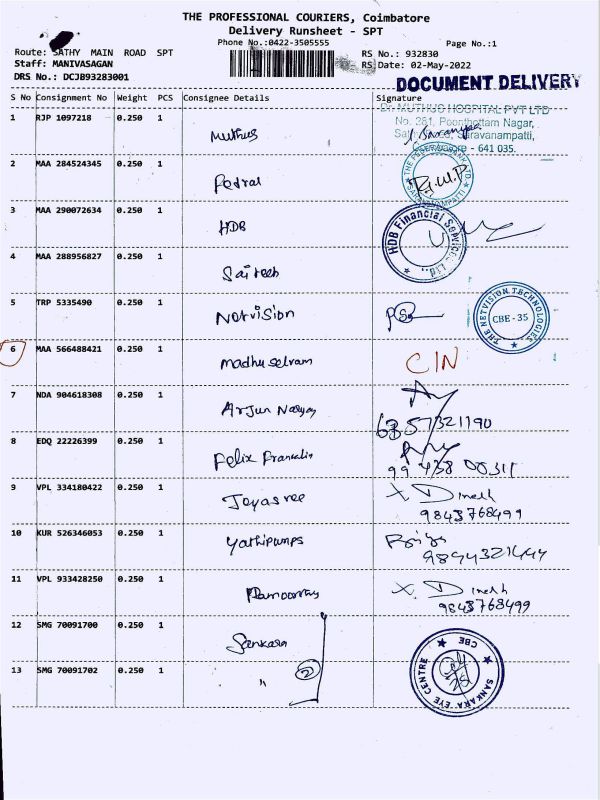 THE PROFESSIONAL COURIERS, Coimbatore
Delivery Runsheet - SPT
Phone No.:0422-3505555 Page No.:1
Route: SATHY MAIN ROAD SPT RS No.: 932830
Staff: MANIVASAGAN RS Date: 02-May-2022
DRS No.: DCJB93283001
DOCUMENT DELIVERY
S No Consignment No Weight PCS Consignee Details Signature
1 RJP 1097218 0.250 1 Muthus
Dr. MUTHUS HOSPITAL PVT LTD
No. 281, Poonthottam Nagar,
Saravanampatti,
- 641 035.
2 MAA 284524345 0.250 1 Fedral
3 MAA 290072634 0.250 1 HDB
HDB Financial Services Ltd.,
4 MAA 288956827 0.250 1
5 TRP 5335490 0.250 1 Netvision
THE NETVISION TECHNOLOGIES
CBE - 35
6 MAA 566488421 0.250 1 Madhu selvam CIN
7 NDA 904618308 0.250 1 Arjun
6357321190
8 EDQ 22226399 0.250 1 Felix Franklin
99438 00311
9 VPL 334180422 0.250 1 Jeyasree X. Dinesh
9843768499
10 KUR 526346053 0.250 1 Yathipumps
9894321444
11 VPL 933428250 0.250 1 X. Dinesh
9843768499
12 SMG 70091700 0.250 1 Sankara
13 SMG 70091702 0.250 1 " 2
SANKARA EYE CENTRE
CBE